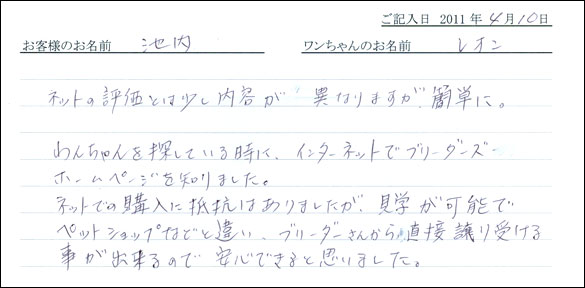 ご記入日 2011年4月10日
お客様のお名前 池内 ワンちゃんのお名前 レオン
ネットの評価とは少し内容が 異なりますが、簡単に。
わんちゃんを探している時に、インターネットでブリーダーズ
ホームページを知りました。
ネットでの購入に抵抗はありましたが、見学が可能で
ペットショップなどと違い、ブリーダーさんから直接譲り受ける
事が出来るので安心できると思いました。